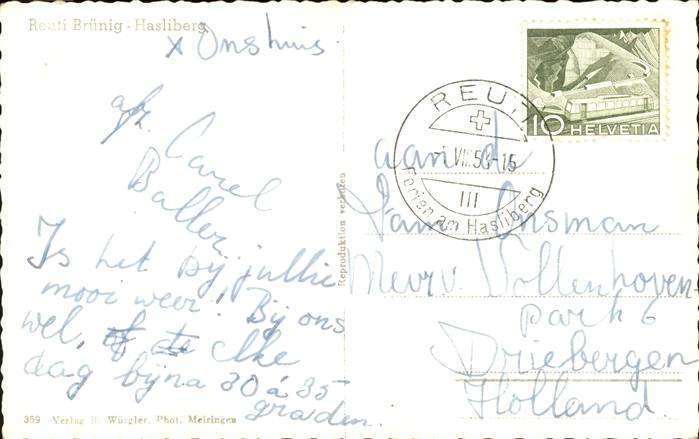 Reuti Brünig - Hasliberg
x Ons huis
afz. Carel
Baller
Is het bij jullie
mooi weer? Bij ons
wel, elke
dag bijna 30 á 35
graden.
359 Verlag B. Würgler, Phot. Meiringen
Reproduktion verboten
REUTI
VIII 56-15
III
Ferien am Hasliberg
10 HELVETIA
aan de
Fam. Onsman
Mevr v. Vollenhoven
park 6
Driebergen
Holland.